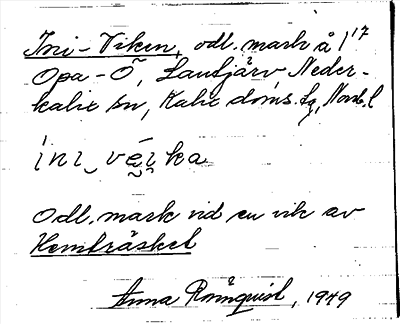 Ini-Viken, odl. mark å l 17
Opa-Ö, Lautjärv Neder-
kalix sn, Kalix doms. lg, Norrb. l
ini vei̯ka
Odl. mark vid en vik av
Hemträsket
Anna Rönnquist, 1949